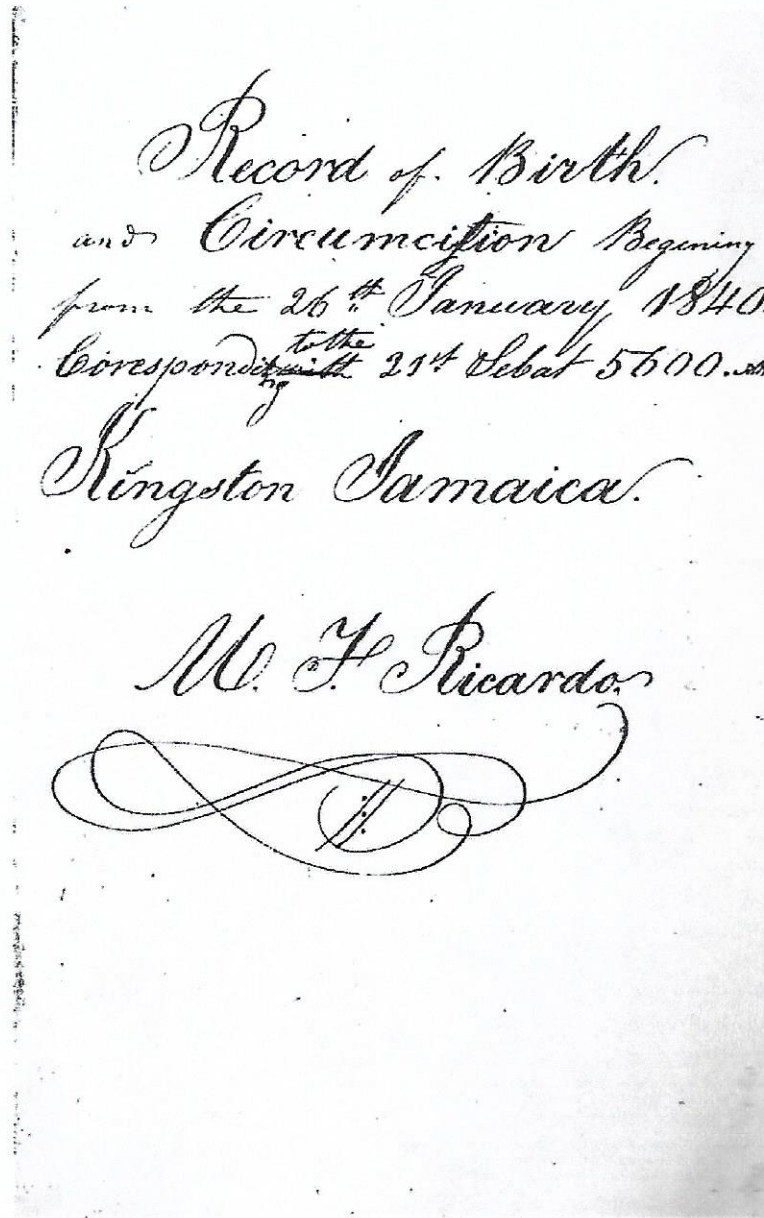 Record of Birth.
and Circumcission Begining
from the 26th January 1840.
to the
Coresponding with 21st Sebat 5600.
Kingston Jamaica.
M. F Ricardo.